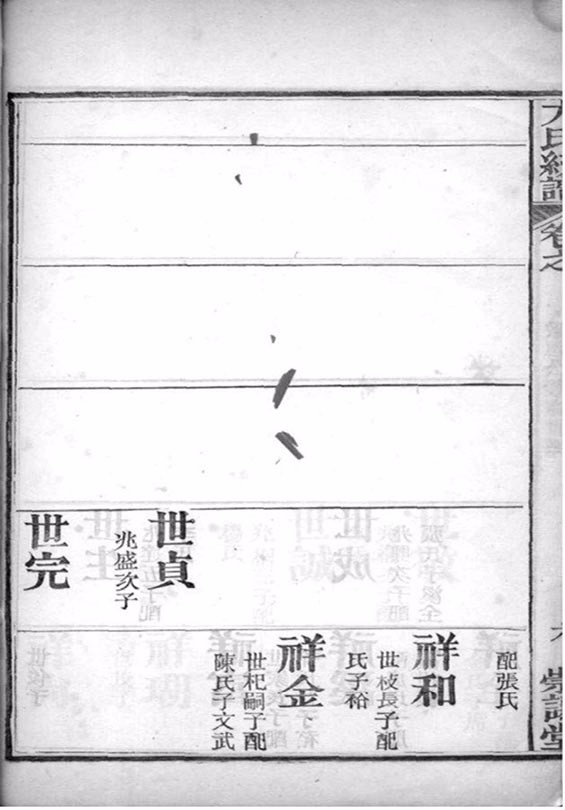 卷之
崇譜堂
世貞
兆盛次子
世完
配張氏
祥和
世枝長子配
氏子裕
祥金
世杞嗣子配
陳氏子文武